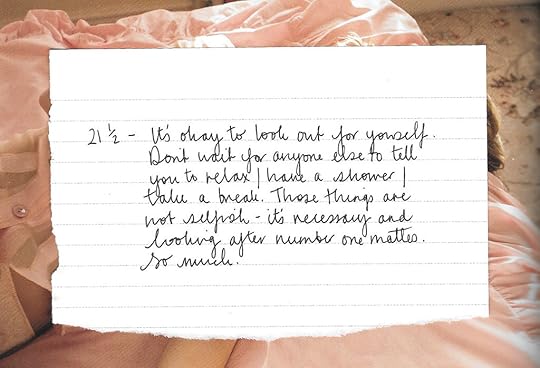 21 ½ - It's okay to look out for yourself.
Don't wait for anyone else to tell
you to relax / have a shower /
take a break. Those things are
not selfish - it's necessary and
looking after number one mattes.
So much.